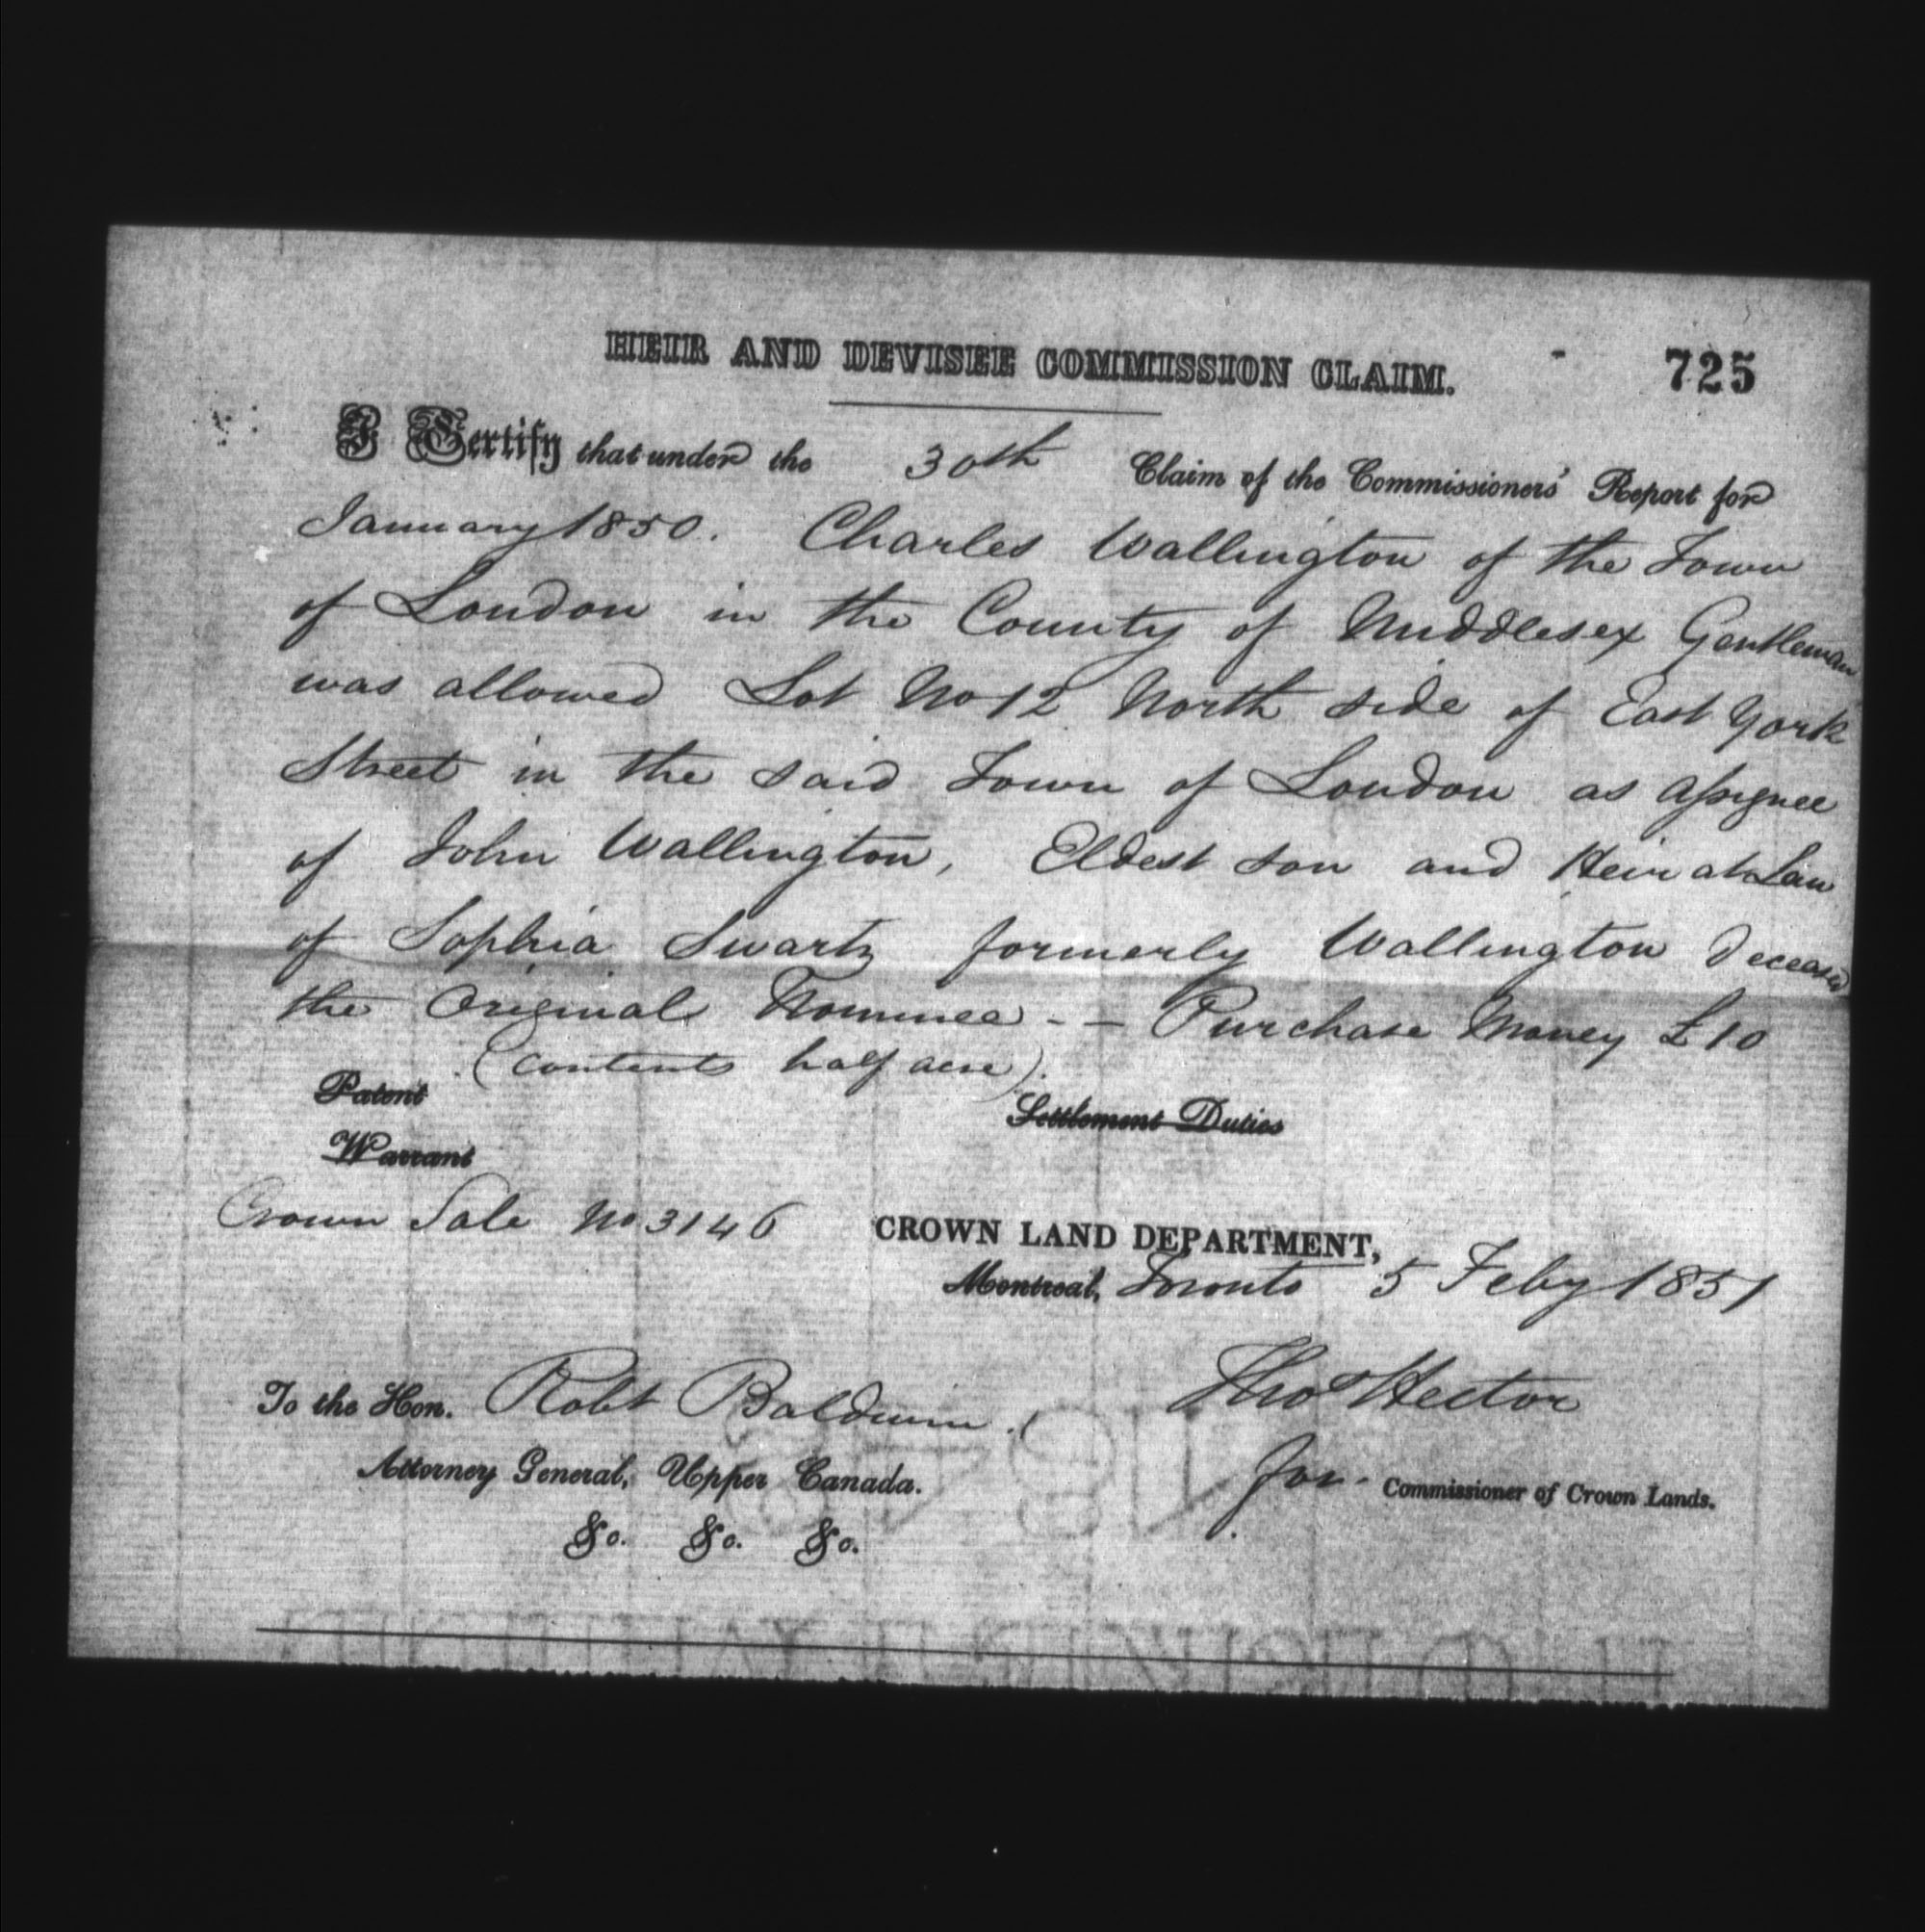 HEIR AND DEVISEE COMMISSION CLAIM. 725
I Certify that under the 30th Claim of the Commissioners' Report for
January 1850. Charles Wallington of the Town
of London in the County of Middlesex Gentleman
was allowed Lot No 12 North side of East York
Street in the said Town of London as Assignee
of John Wallington, Eldest son and Heir at Law
of Sophia Swartz formerly Wallington Deceased
the Original Nominee - - Purchase Money £10
(contents half acre).
Patent
Settlement Duties
Warrant
Crown Sale No 3146
CROWN LAND DEPARTMENT,
Montreal, Toronto 5 Feby 1851
To the Hon. Robt Baldwin
Thos Hector
Attorney General, Upper Canada.
for Commissioner of Crown Lands.
&c. &c. &c.